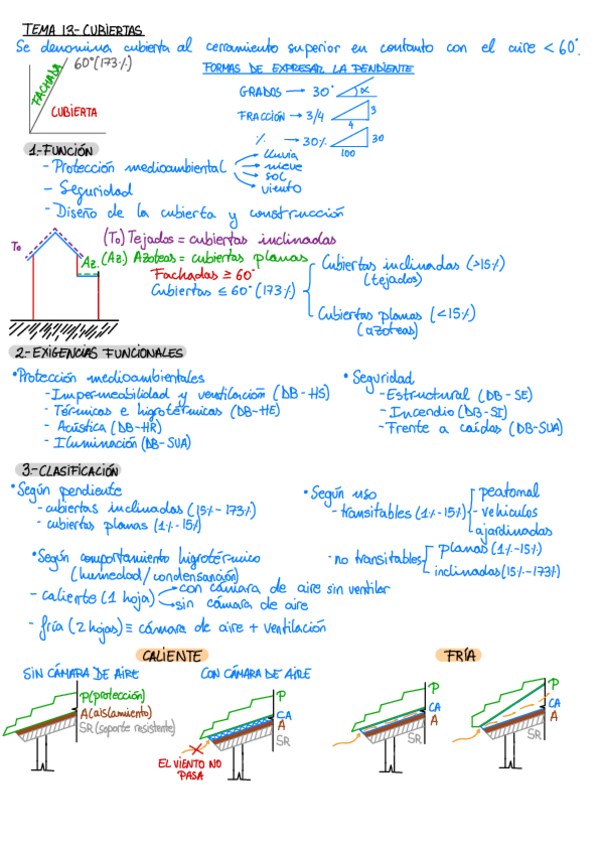 TEMA 13- CUBIERTAS
Se denomina cubierta al cerramiento superior en contanto con el aire < 60°.
60°(173%)
FACHADA
CUBIERTA
FORMAS DE EXPRESAR LA PENDIENTE
GRADOS → 30° α
FRACCIÓN → 3/4 3
4
% → 30% 30
100
1.-FUNCIÓN
- Protección medioambiental
lluvia
nieve
SOL
viento
- Seguridad
- Diseño de la cubierta y construcción
To
Az.
(To) Tejados = cubiertas inclinadas
(Az.) Azoteas = cubiertas planas
Fachadas ≥ 60°
Cubiertas ≤ 60° (173%)
Cubiertas inclinadas (>15%)
(tejados)
Cubiertas planas (<15%)
(azoteas)
2.-EXIGENCIAS FUNCIONALES
•Protección medioambientales
- Impermeabilidad y ventilación (DB-HS)
- Térmicas e higrotérmicas (DB-HE)
- Acústica (DB-HR)
- Iluminación (DB-SUA)
• Seguridad
- Estructural (DB-SE)
- Incendio (DB-SI)
- Frente a caídas (DB-SUA)
3.-CLASIFICACIÓN
•Según pendiente
- cubiertas inclinadas (15%-173%)
- cubiertas planas (1%-15%)
•Según uso
- transitables (1%-15%)
peatonal
- vehículos
ajardinadas
- no transitables
planas (1%-15%)
inclinadas (15%-173%)
•Según comportamiento higrotérmico
(humedad/condensanción)
- caliente (1 hoja)
con cámara de aire sin ventilar
sin cámara de aire
- fría (2 hojas) ≡ cámara de aire + ventilación
CALIENTE
FRÍA
SIN CÁMARA DE AIRE
CON CÁMARA DE AIRE
P(protección)
A(aislamiento)
SR(soporte resistente)
P
CA
A
SR
EL VIENTO NO
PASA
P
CA
A
SR
P
CA
A
SR